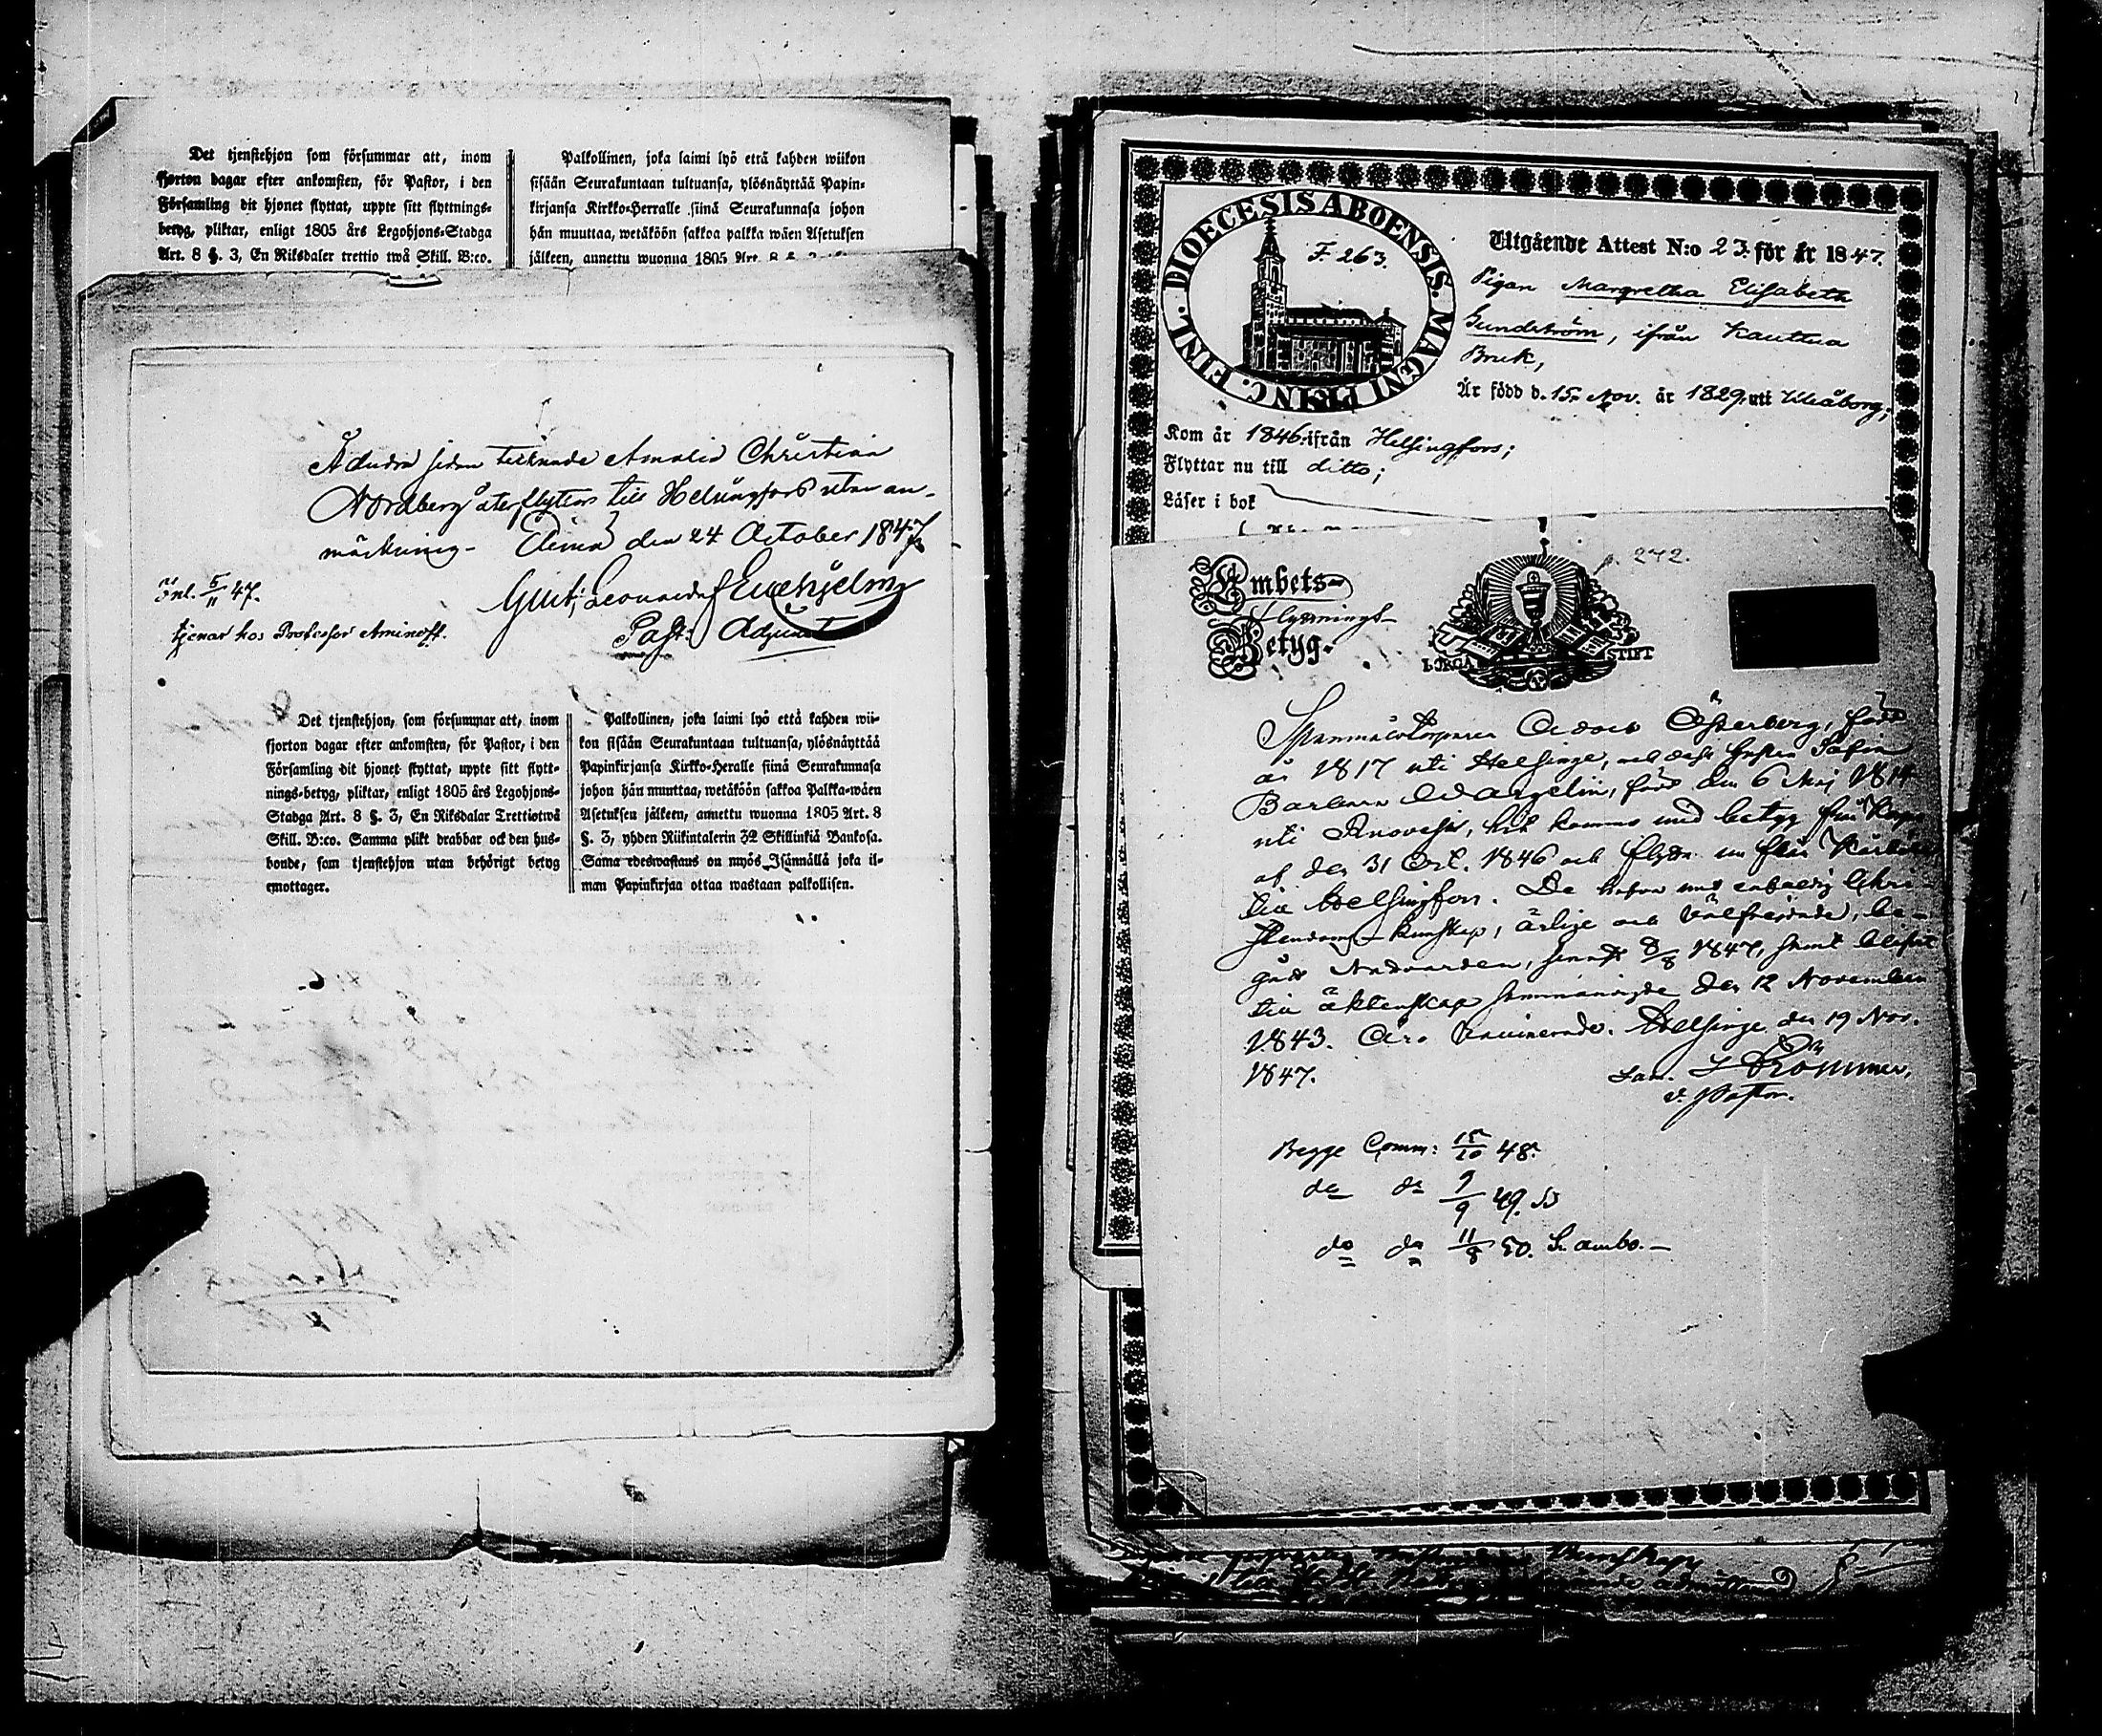 Det tjenstehjon som försummar att, inom
fjorton dagar efter ankomsten, för Pastor, i den
Församling dit hjonet flyttat, uppte sitt flyttnings-
betyg, pliktar, enligt 1805 års Legohjons-Stadga
Art. 8 §. 3, En Riksdaler trettio twå Skill. B:co.
Palkollinen, joka laimi lyö että kahden wiikon
sisään Seurakuntaan tultuansa, ylösnäyttää Papin-
kirjansa Kirkko-Herralle siinä Seurakunnasa johon
hän muuttaa, wetäköön sakkoa palkka wäen Asetuksen
jälkeen, annettu wuonna 1805 Art. 8 §.
Å andra sidan tecknade Amalia Christina
Nordberg återflyttar till Helsingfors utan an-
märkning. Elimä den 24 October 1847
Gust. Leonard Euchjelm
Past: Adjunct
Inl. 5/11 47.
tjenar hos Professor Aminoff.
Det tjenstehjon, som försummar att, inom
fjorton dagar efter ankomsten, för Pastor, i den
Församling dit hjonet flyttat, uppte sitt flytt-
nings-betyg, pliktar, enligt 1805 års Legohjons-
Stadga Art. 8 §. 3, En Riksdalar Trettiotwå
Skill. B:co. Samma plikt drabbar ock den hus-
bonde, som tjenstehjon utan behörigt betyg
emottager.
Palkollinen, joka laimi lyö että kahden wii-
kon sisään Seurakuntaan tultuansa, ylösnäyttää
Papinkirjansa Kirkko-Heralle siinä Seurakunnasa
johon hän munttaa, wetäköön sakkoa Palkka-wäen
Asetuksen jälkeen, annettu wuonna 1805 Art. 8
§. 3, yhden Riikintalerin 32 Skillinkiä Bankosa.
Sama edeswastaus on myös Isännällä joka il-
man Papinkirjaa ottaa wastaan palkollisen.
DIOECESIS ABOENSIS. MAGNI PRINC. FINL.
F. 263.
Utgående Attest N:o 23. för år 1847.
Pigan Margretha Elisabeth
Sundström, ifrån Kauttua
Bruk,
Är född d. 15. Nov. år 1829. uti Uleåborg;
Kom år 1846. ifrån Helsingfors;
Flyttar nu till ditto;
Läser i bok
p. 272.
Embets-
Flyttnings-
Betyg.
BORGÅ STIFT
Spanmålstorparen Österberg, född
år 1817 uti Helsinge, och dess hustru Sofia
Barbara Wangelin, född den 6 Maj 1814
uti, hit komne med betyg från
af den 31 Oct. 1846 och flytta nu från
till Helsingfors. De hafva med enfaldig Chri-
stendoms-kunskap, ärlige och välfrejdade, be-
gått Nattvarden, senast 8/8 1847, samt blifvit
till äktenskap sammanvigde den 12 November
1843. Äro vaccinerade. Helsinge den 19 Nov.
1847.
Sam. Strömmer,
v. Pastor.
Begge Comm: 15/10 48.
do do 9/9 49.
do do 11/8 50.